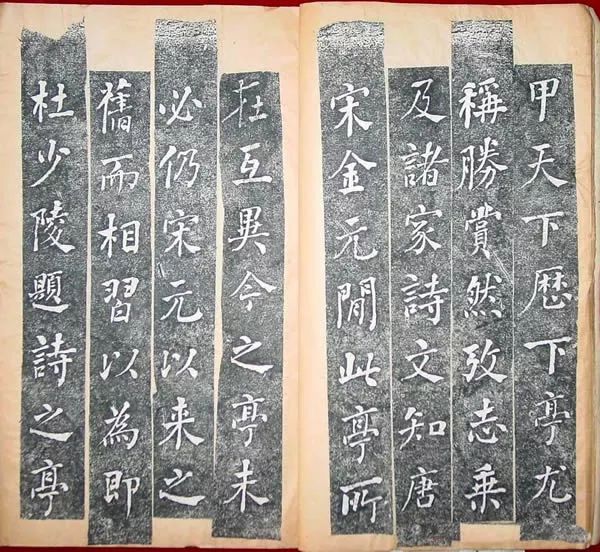 甲天下歷下亭尤
稱勝賞然攷志乘
及諸家詩文知唐
宋金元間此亭所
在互異今之亭未
必仍宋元以来之
舊而相習以為即
杜少陵題詩之亭